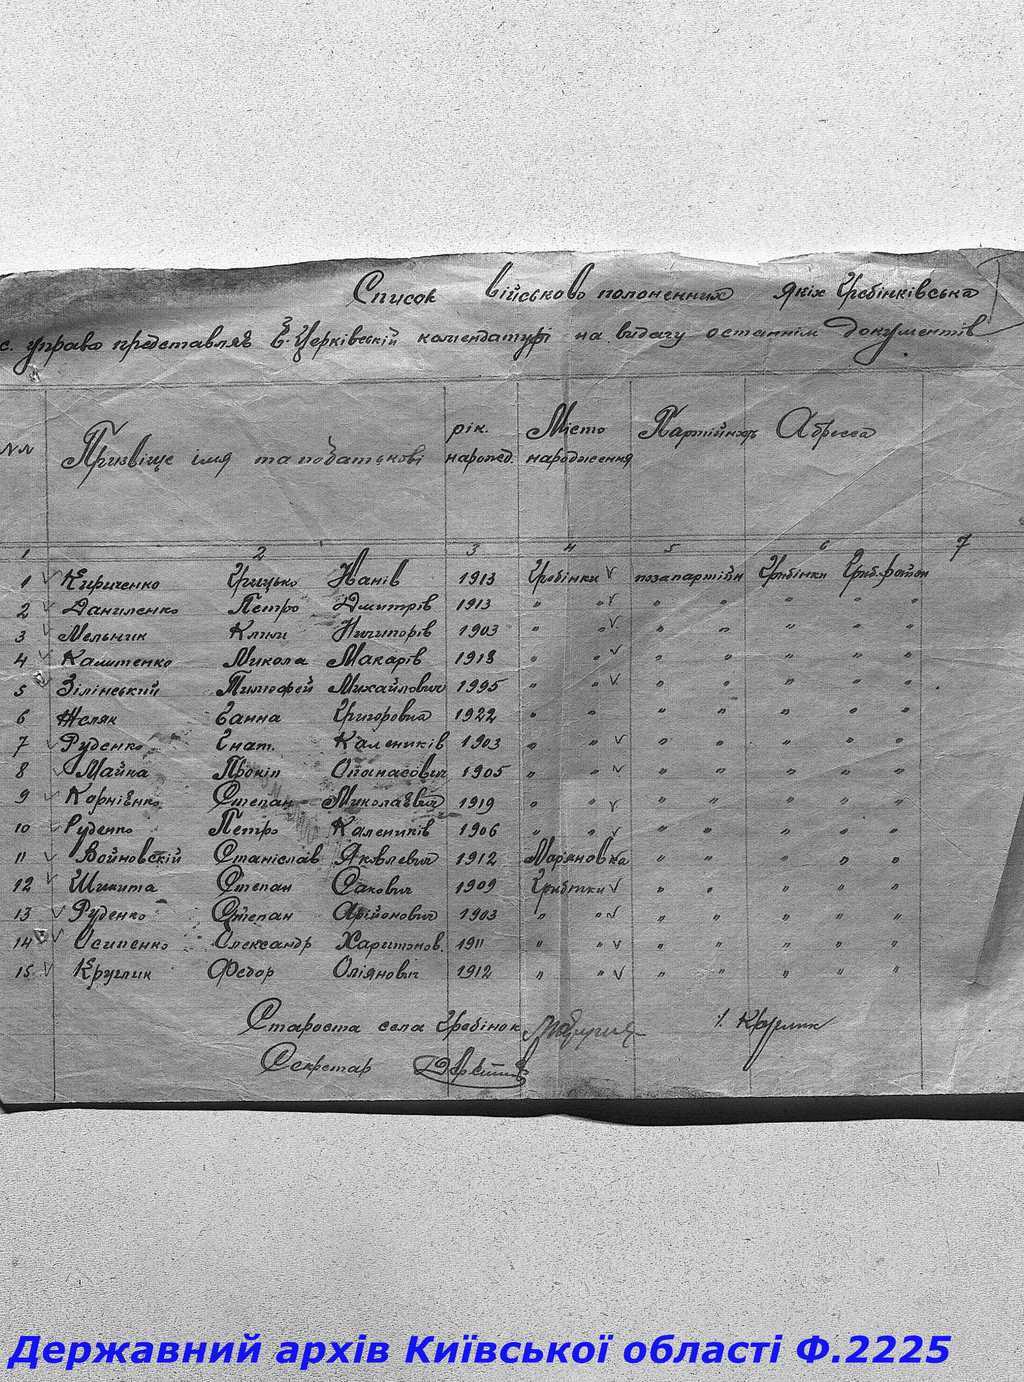 Список військово полоненних якіх Гребінківська
с. управа представляє Б-Церківській комендатурі на видачу останнім документів.
№№ Призвіще імя та по батькові рік. нарожд. Місто народження Партійнодь Адресса
1 2 3 4 5 6 7
1 Кириченко Грицько Іванів 1913 Гребінки позапартійн Гребінки Греб. району
2 Даниленко Петро Дмитрів 1913 " " " " " " "
3 Мельник Клим Ничипорів 1903 " " " " " " "
4 Каштенко Микола Макарів 1918 " " " " " " "
5 Зілінський Тимофей Михайлович 1995 " " " " " " "
6 Желяк Ганна Григоровна 1922 " " " " " " "
7 Руденко Гнат. Калеників 1903 " " " " " " "
8 Майка Прокіп Опанасович 1905 " " " " " " "
9 Корнієнко Степан Миколаєвич 1919 " " " " " " "
10 Руденко Петро Калеників 1906 " " " " " " "
11 Войновскій Станіслав Яковлевич 1912 Маряновка " " " " "
12 Шикита Степан Сакович 1909 Гребінки " " " " "
13 Руденко Степан Аріонович 1903 " " " " " " "
14 Осипенко Олександр Харитонов. 1911 " " " " " " "
15 Круглик Федор Оліянович 1912 " " " " " " "
Староста села Гребінок
Секретар
Державний архів Київської області Ф.2225